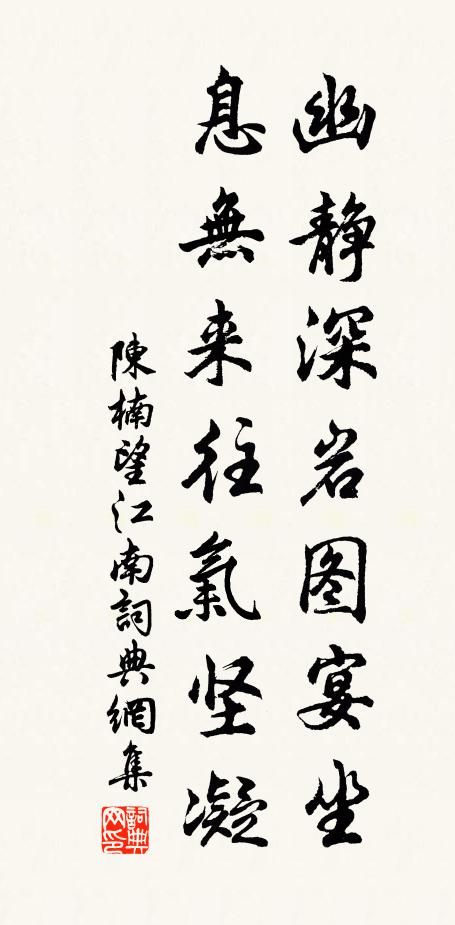 幽静深岩图宴坐
息無来往氣坚凝
陳楠望江南詞典網集
詞典网印